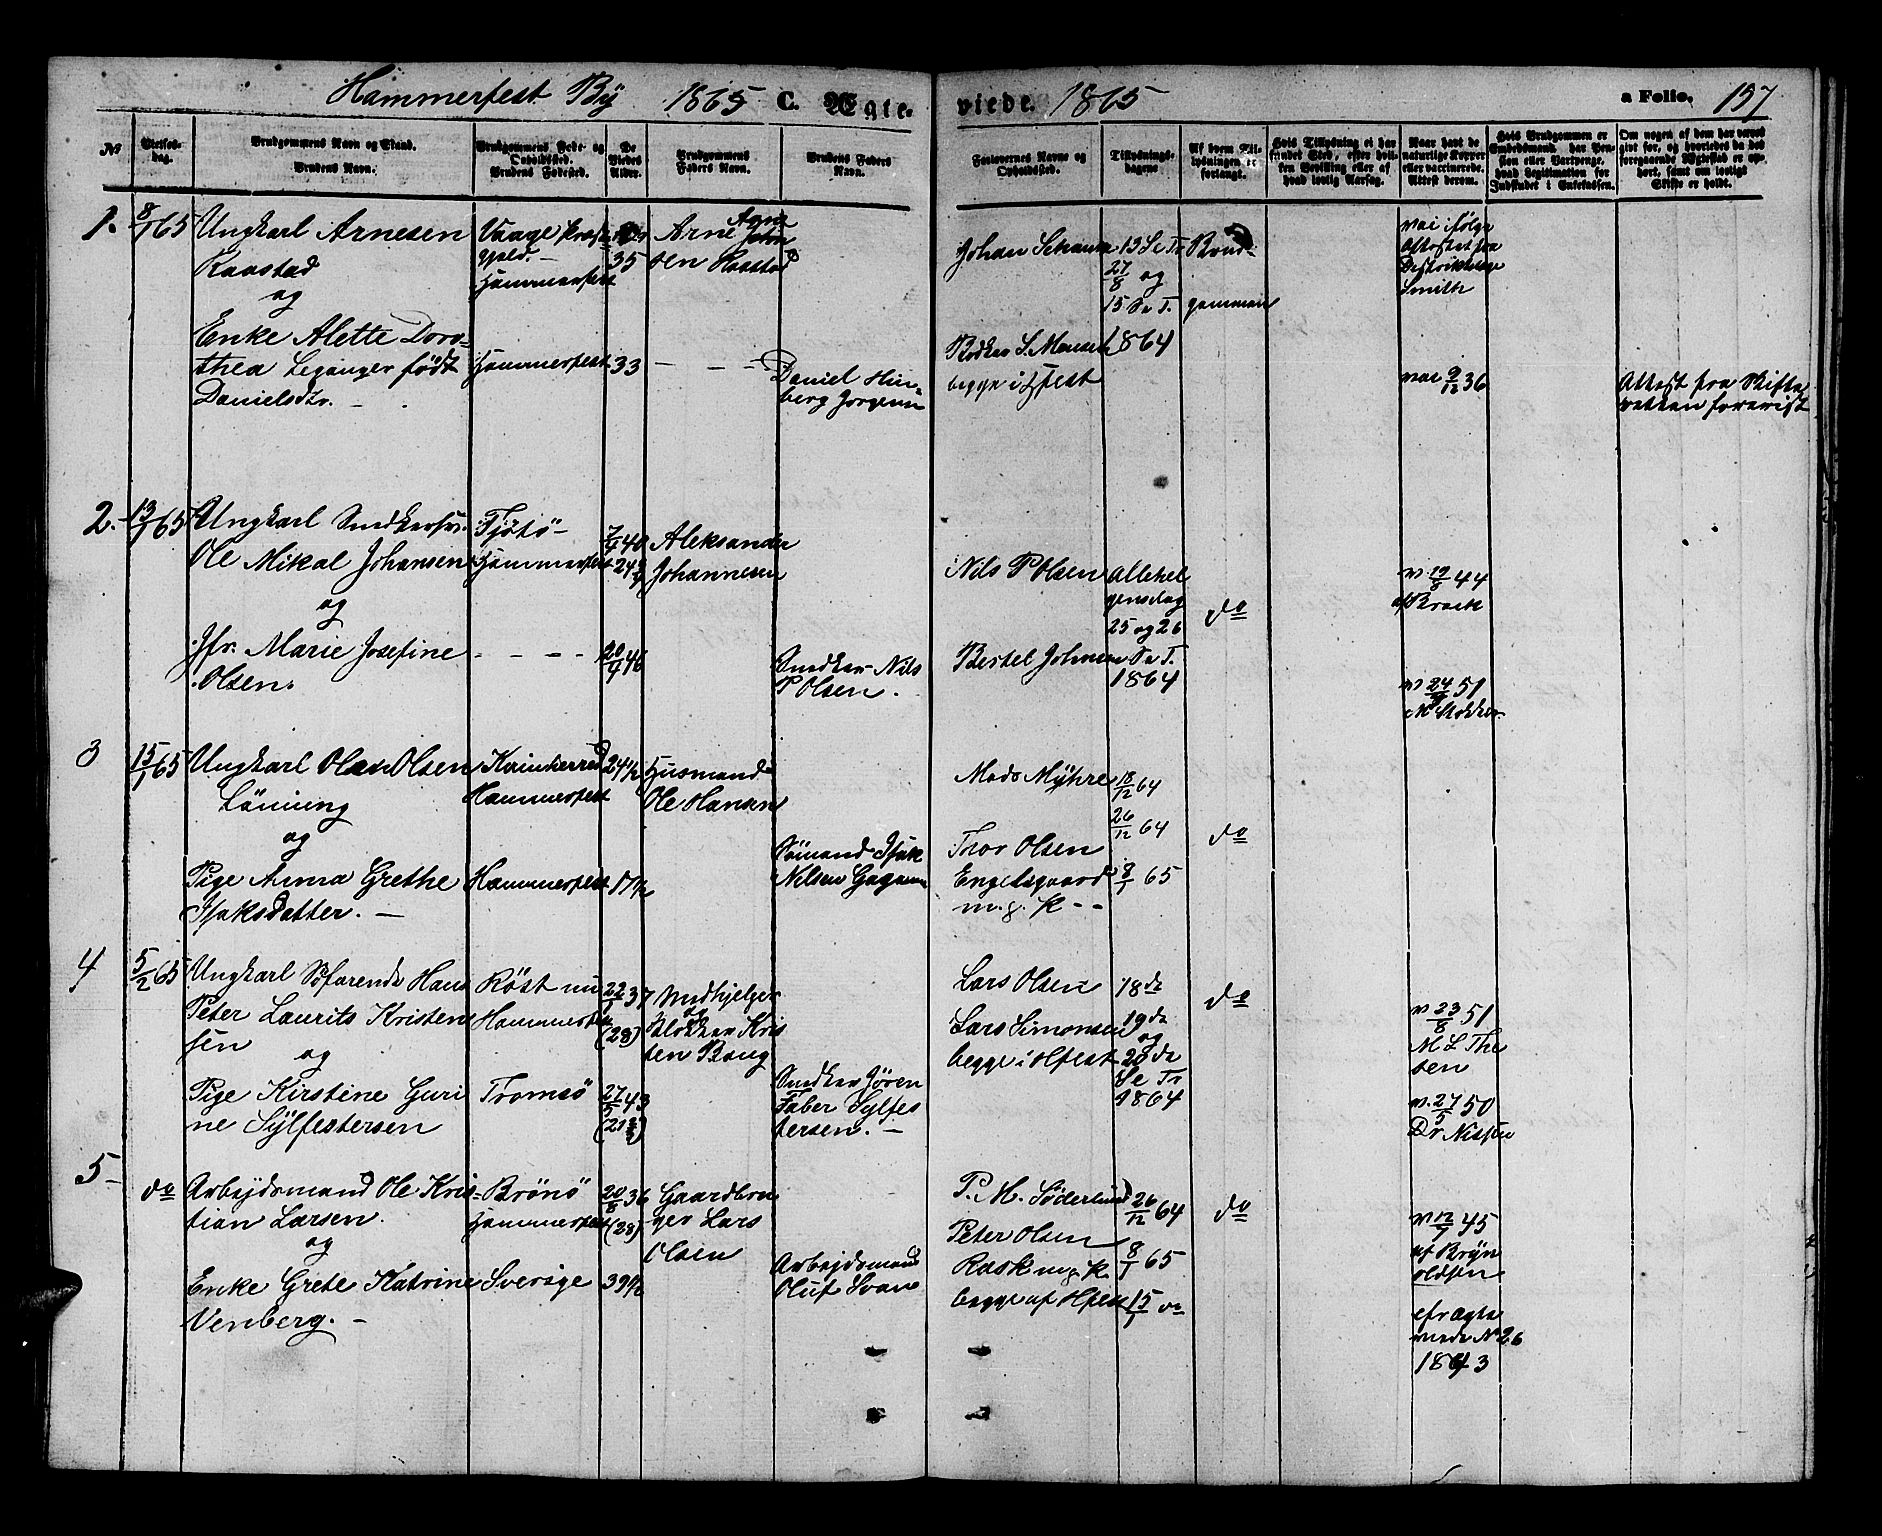 Hammerfest By 1865 C. Ægte-
viede. 1865 a Folio. 157
No
Vielses-
dag.
Brudgommens Navn og Stand.
Brudens Navn.
Brudgommens Føde- og
Opholdssted.
Brudens Fødested.
De
Viedes
Alder.
Brudgommens
Faders Navn.
Brudens Faders
Navn.
Forlovernes Navne og
Opholdssted.
Tillysnings-
dagene
Af hvem Til-
lysningen er
forlangt.
Hvis Tillysning ei har
fundet Sted, efter hvil-
ken Bevilling eller af
hvad lovlig Aarsag.
Naar havt de
naturlige Kopper
eller vaccinerede.
Attest derom.
Hvis Brudgommen er
Embedsmand, har Pen-
sion eller Vartpenge,
hvad Legitimation for
Indskudet i Enkekassen.
Om nogen af dem har været
gift før, og hvorledes da det
foregaaende Ægteskab er op-
hørt, samt om lovligt
Skifte er holdt.
1. 8/1 65
Ungkarl Arnesen
Raastad
og
Enke Alette Doro-
thea Leganger født
Danielsdtr.
Vaage Præste
gjeld.
Hammerfest
Hammerfest
35
33
Arne John
sen Raastad
Daniel Hin-
berg Jørgensen
Johan Schanse
Bødker S. Monsen
begge i Hfest
13 Se Tr
27/8 og
15 Se T.
1864
Brud-
gommen
vac ifølge
Attest fra
Distriktslæge
Smith
vac 9/12 36
Attest fra Skifte
retten forevist
2. 13/1 65
Ungkarl Snedkersv.
Ole Mikal Johansen
og
Jfr. Marie Josefine
Olsen.
Tjøtø
Hammerfest
7/4 40
24 3/4
20/4 46
Aleksander
Johannesen
Snedker Nils
P Olsen.
Nils P Olsen
Bertel Johnsen
Allehel
gensdag
25 og 26
Se T.
1864
do
v. 19/8 44
af Brock
v 24/9 51
M Stokker
3 15/1 65
Ungkarl Olaen Olsen
Lönning
og
Pige Anna Grethe
Isaksdatter.
Kvinherred
Hammerfest
Hammerfest
24 1/2
17 1/2
Husmand
Ole Hansen
Sømand Isak
Nilsen Gagama
Mads Myhre
Thor Olsen
Engelsgaard
m. g. K
18/12 64
26/12 64
8/1 65
do
4 5/2 65
Ungkarl Søfarende Hans
Peter Laurits Kristen
sen
og
Pige Kirstine Guri
ne Sylfestersen
Röst nu
Hammerfest
Tromsø
22/1 37
(28)
27/5 43
(21 3/4)
Medhjelper
og
Klokker Kris
ten Boug
Snedker Jören
Faber Sylfes
tersen.
Lars Olsen
Lars Simonsen
begge i Hfest
18de
19de
og
20de
Se Tr
1864
do
v 23/8 51
M L The
sen
v. 27/5 50
Dr Nissen
5
do
Arbejdsmand Ole Kris-
tian Larsen
og
Enke Grete Katrine
Venberg.
Brönö
Hammerfest
Sverige
20/8 36
(28)
39 1/2
Gaardbru
ger Lars
Olsen
Arbejdsmand
Oluf Svan
P. M. Söderlund
Peter Olsen
Rask m. g. K.
begge af Hfest
26/12 64
8/1 65
15/1 do
do
v 12/9 45
af Bryn
oldsen
cfr ægte
viede No 26
1843